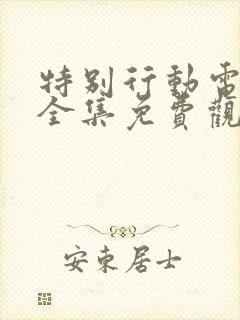 特別行動電
全集免費觀
安東居士